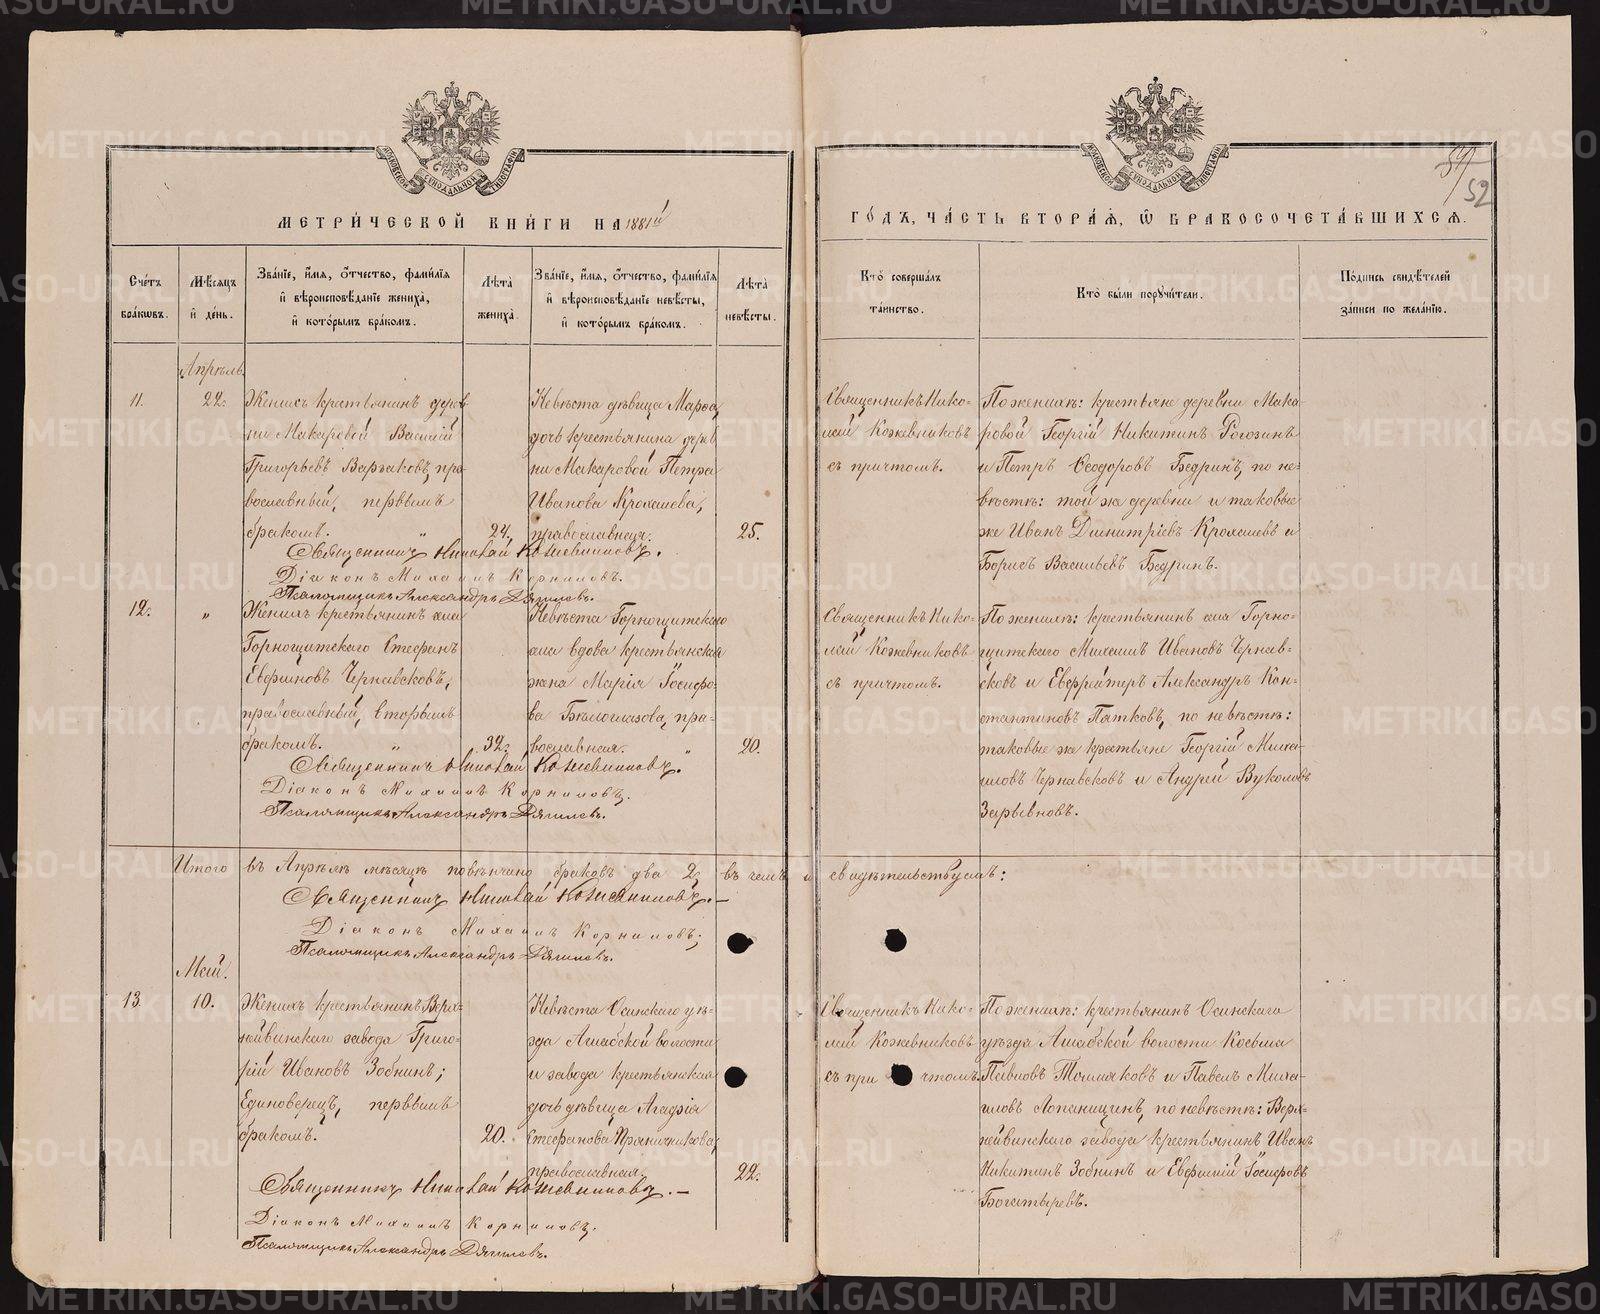 МЕТРИЧЕСКОЙ КНИГИ НА 1881й
Счетъ браковъ.
Мѣсяцъ и день.
Званіе, имя, отчество, фамилія и вѣроисповѣданіе жениха, и которымъ бракомъ.
Лѣта жениха.
Званіе, имя, отчество, фамилія и вѣроисповѣданіе невѣсты, и которымъ бракомъ.
Лѣта невѣсты.
Апрѣль
11.
22.
Женихъ крестьянинъ дерев
ни Макаровой Василій
Григорьевъ Варзаковъ, пра
вославный, первымъ
бракомъ.
24.
Невѣста дѣвица Марѳа,
дочь крестьянина дерев
ни Макаровой Петра
Иванова Крохалева,
православная.
25.
Священникъ Николай Кожевниковъ.
Діаконъ Михаилъ Корниловъ.
Псаломщикъ Александръ Дягилевъ.
12.
"
Женихъ крестьянинъ села
Горнощитскаго Стефанъ
Евфимовъ Чернавсковъ,
православный, вторымъ
бракомъ.
32.
Невѣста Горнощитскаго
села вдова крестьянская
жена Марія Іосифо-
ва Бѣлоглазова, пра-
вославная.
20.
Священникъ Николай Кожевниковъ.
Діаконъ Михаилъ Корниловъ.
Псаломщикъ Александръ Дягилевъ.
Итого въ Апрѣлѣ мѣсяцѣ повѣнчано браковъ два 2, въ чемъ и свидѣтельствуемъ:
Священникъ Николай Кожевниковъ.
Діаконъ Михаилъ Корниловъ;
Псаломщикъ Александръ Дягилевъ.
Май.
13.
10.
Женихъ крестьянинъ Верх-
нейвинскаго завода Григо-
рій Ивановъ Зобнинъ;
Единоверецъ, первымъ
бракомъ.
20.
Невѣста Осинскаго уѣ-
зда Ашабской волости
и завода крестьянская
дочь дѣвица Агафія
Стефанова Пряничникова,
православная.
22.
Священникъ Николай Кожевниковъ.
Діаконъ Михаилъ Корниловъ.
Псаломщикъ Александръ Дягилевъ.
52
ГОДЪ, ЧАСТЬ ВТОРАЯ, Ѿ БРАКОСОЧЕТАВШИХСЯ.
Кто совершалъ таинство.
Кто были поручители.
Подпись свидѣтелей записи по желанію.
Священникъ Нико-
лай Кожевниковъ
съ причтомъ.
По женихѣ: крестьяне деревни Мака-
ровой Георгій Никитинъ Рогозинъ
и Петръ Ѳеодоровъ Бедринъ, по не-
вѣстѣ: той же деревни и таковые
же Иванъ Димитріевъ Крохалевъ и
Борисъ Васильевъ Бедринъ.
Священникъ Нико-
лай Кожевниковъ
съ причтомъ.
По женихѣ: крестьянинъ села Горно-
щитскаго Михаилъ Ивановъ Чернав-
сковъ и Ефрейтеръ Александръ Кон-
стантиновъ Пятковъ, по невѣстѣ:
таковые же крестьяне Георгій Миха-
иловъ Чернавсковъ и Андрей Вуколовъ
Зарывновъ.
Священникъ Нико-
лай Кожевниковъ
съ причтомъ.
По женихѣ: крестьянинъ Осинскаго
уѣзда Ашабской волости Косьма
Павловъ Толмаковъ и Павелъ Миха-
иловъ Лопаницинъ, по невѣстѣ: Верх-
нейвинскаго завода крестьянинъ Иванъ
Никитинъ Зобнинъ и Евфимій Іосифовъ
Богатыревъ.
METRIKI.GASO-URAL.RU